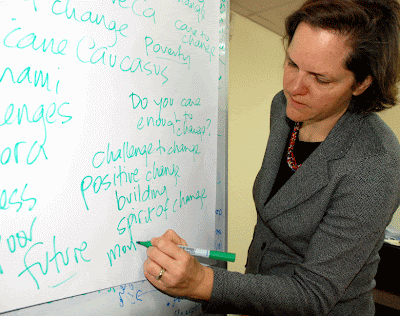 Ca
change
care to
change
cane Caucasus
Poverty
nami
Do you care
enough to
change?
enges
ora
challenge to change
positive change
ess
building
spirit of change
oor
future
mou